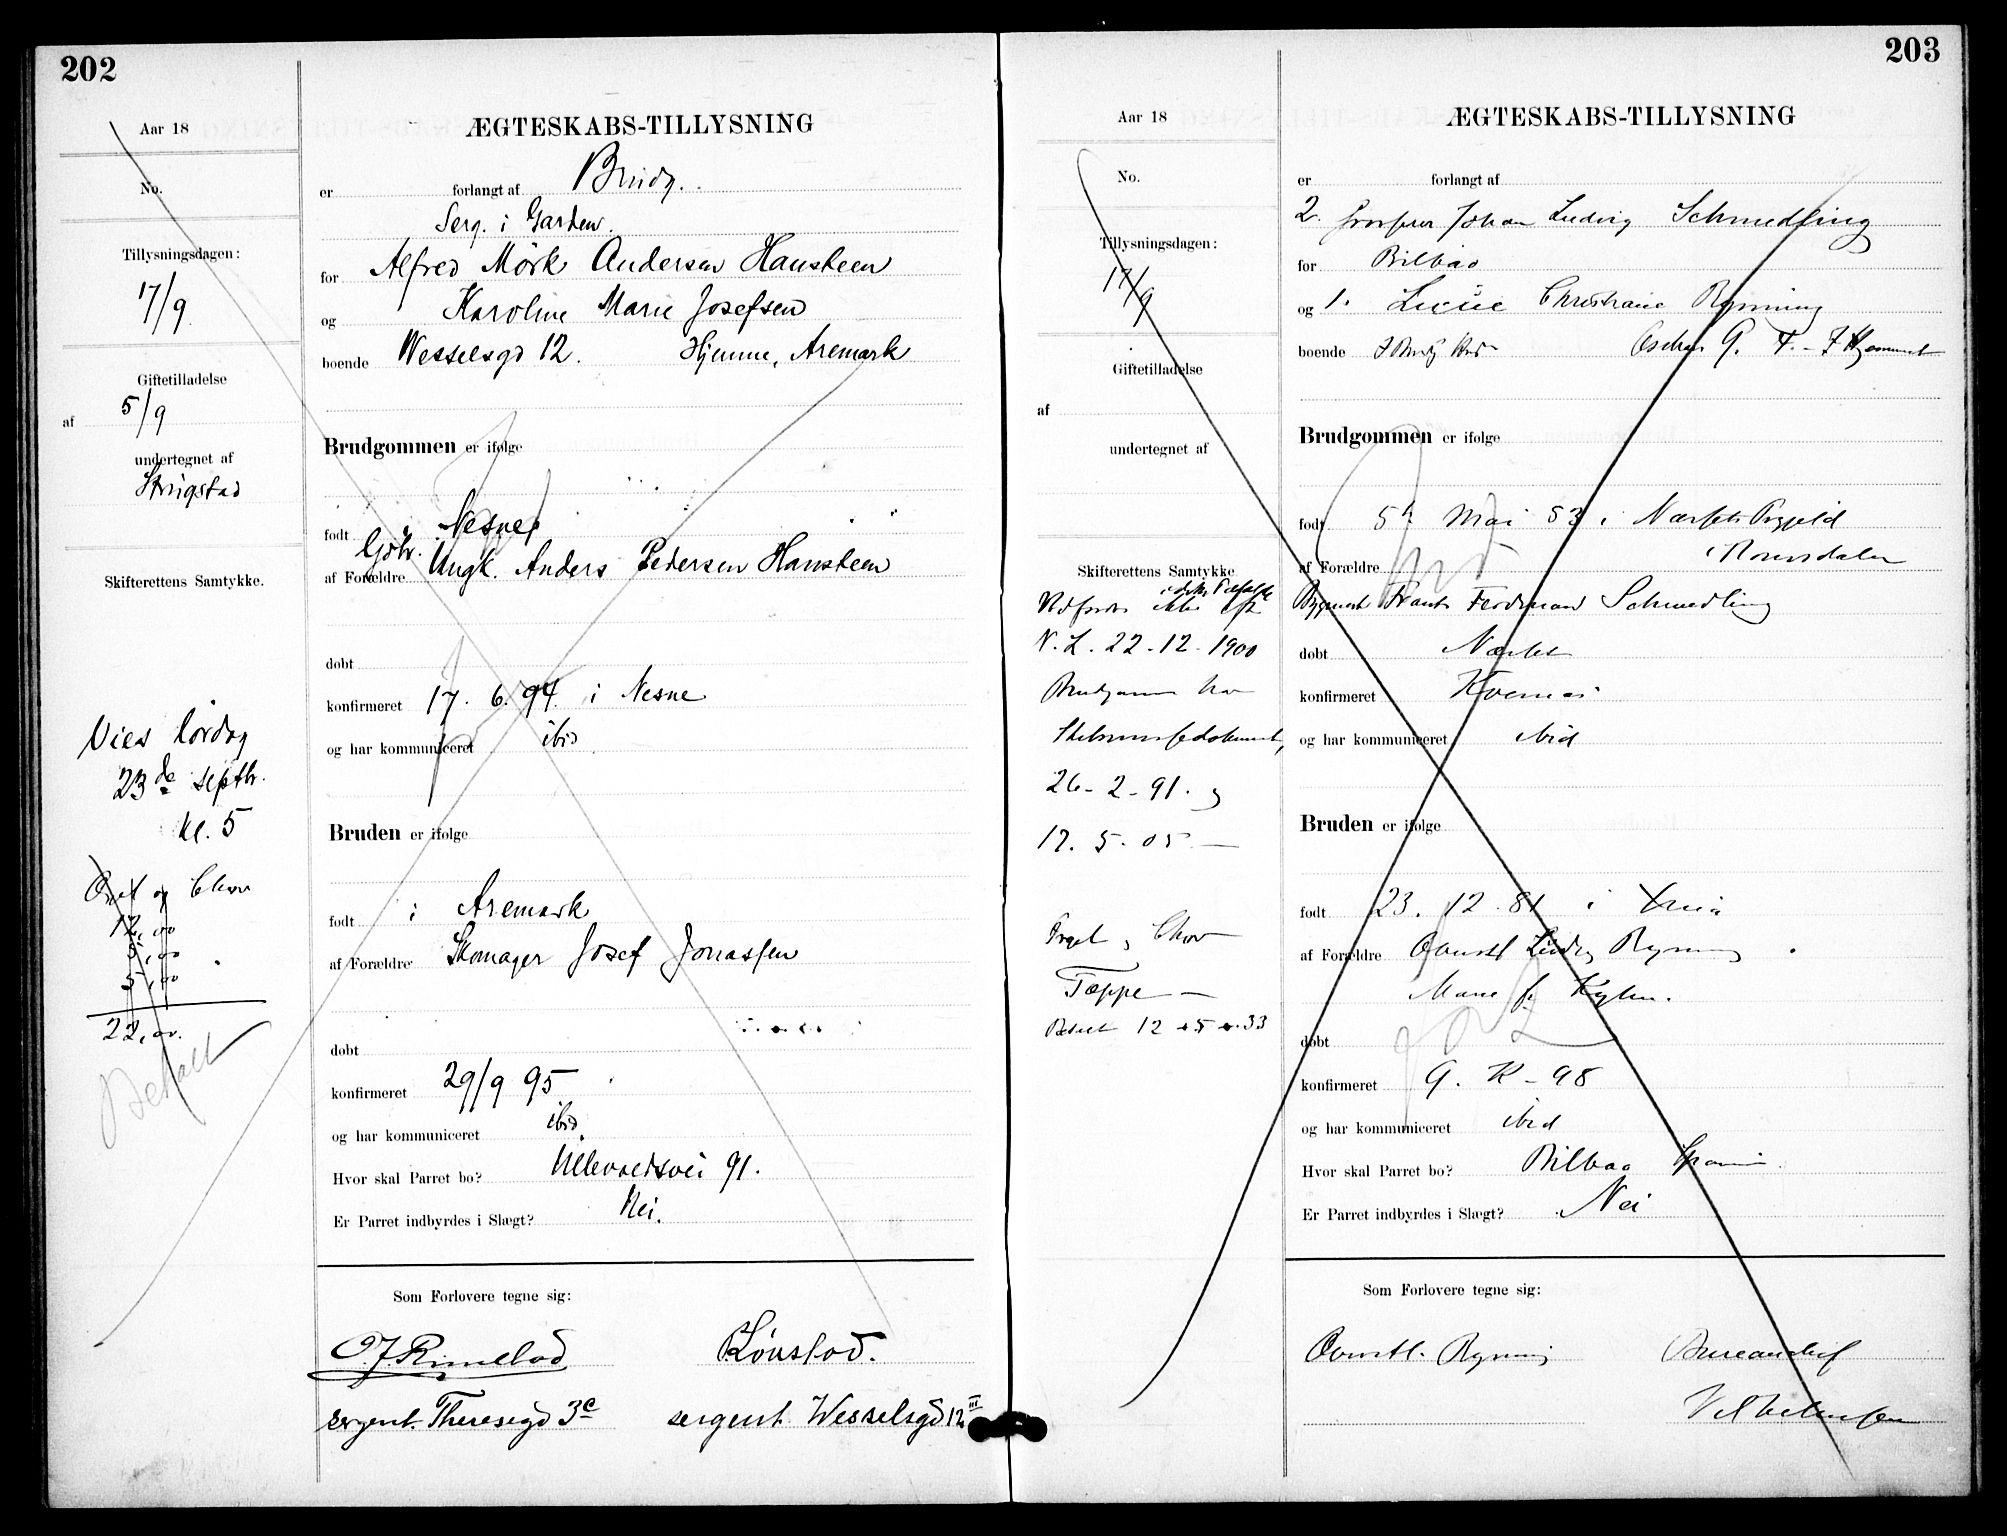 202
Aar 18
No.
Tillysningsdagen:
17/9
Giftetilladelse
af 5/9
undertegnet af
Skifterettens Samtykke.
Vies Lørdag
23de septbr.
kl. 5
Orgel og Chor
12,00
5,00
5,00
22,00.
Betalt
ÆGTESKABS-TILLYSNING
er forlangt af Brudg.
Serg. i Garden.
for Alfred Mörk Andersen Hansteen
og Karoline Marie Josefsen
boende Wesselsgd 12. Hjemme, Aremark
Brudgommen er ifølge
født Nesne
af Forældre Gbr. Ungk. Anders Pedersen Hansteen
døbt
konfirmeret 17. 6. 94. i Nesne
og har kommuniceret ibid
Bruden er ifølge
født i Aremark
af Forældre Skomager Josef Jonassen
døbt
konfirmeret 29/9 95
og har kommuniceret ibid.
Hvor skal Parret bo? Ullevoldsvei 91.
Er Parret indbyrdes i Slægt? Nei.
Som Forlovere tegne sig:
Lønstad.
sergent. Theresegd 3c sergent Wesselsgd 12 III
203
Aar 18
No.
Tillysningsdagen:
17/9
Giftetilladelse
af
undertegnet af
Skifterettens Samtykke
N. L. 22-12-1900
26-2-91. og
12. 5. 05
Orgel og Chor
Tæppe
Betalt 12 + 5 + 33
ÆGTESKABS-TILLYSNING
er forlangt af
2. Johan Ludvig Schmedling
for Bilbao
og 1. Christiane Rynning
boende Oscars G.
Brudgommen er ifølge
født 5te Mai 53 i
af Forældre Romsdalen
Frants Ferdinand Schmedling
døbt
konfirmeret
og har kommuniceret ibid
Bruden er ifølge
født 23. 12. 81 i
af Forældre Oberstl. Ludvig Rynning
Marie f.
døbt
konfirmeret G. K - 98
og har kommuniceret ibid
Hvor skal Parret bo? Bilbao Spanien.
Er Parret indbyrdes i Slægt? Nei
Som Forlovere tegne sig:
Oberstl. Rynning Bureauchef
Vilhelmsen